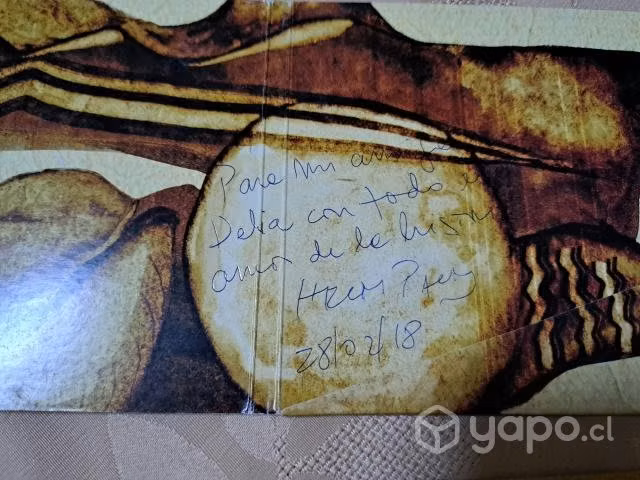 Para mi amiga
Delia con todo el
amor de la
28/02/18
yapo.cl